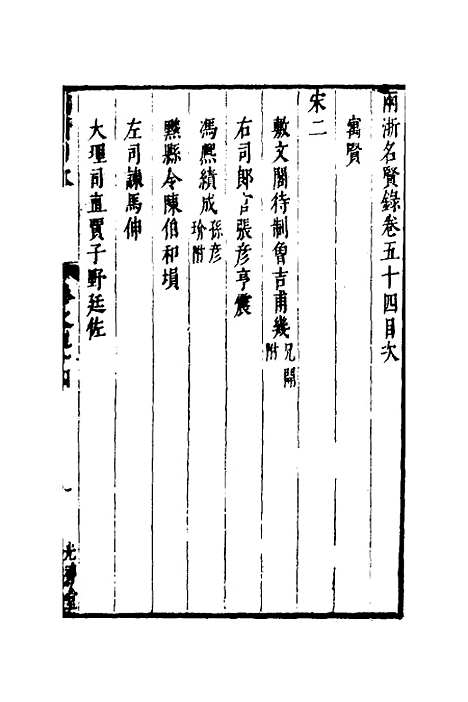 兩浙名賢錄卷五十四目次
寓賢
宋二
敷文閣待制曾吉甫幾兄開附
右司郎官張彥亨震
馮熈績成孫彥玠附
黟縣令陳伯和塤
左司諫馬伸
大理司直賈子野廷佐
光碧堂